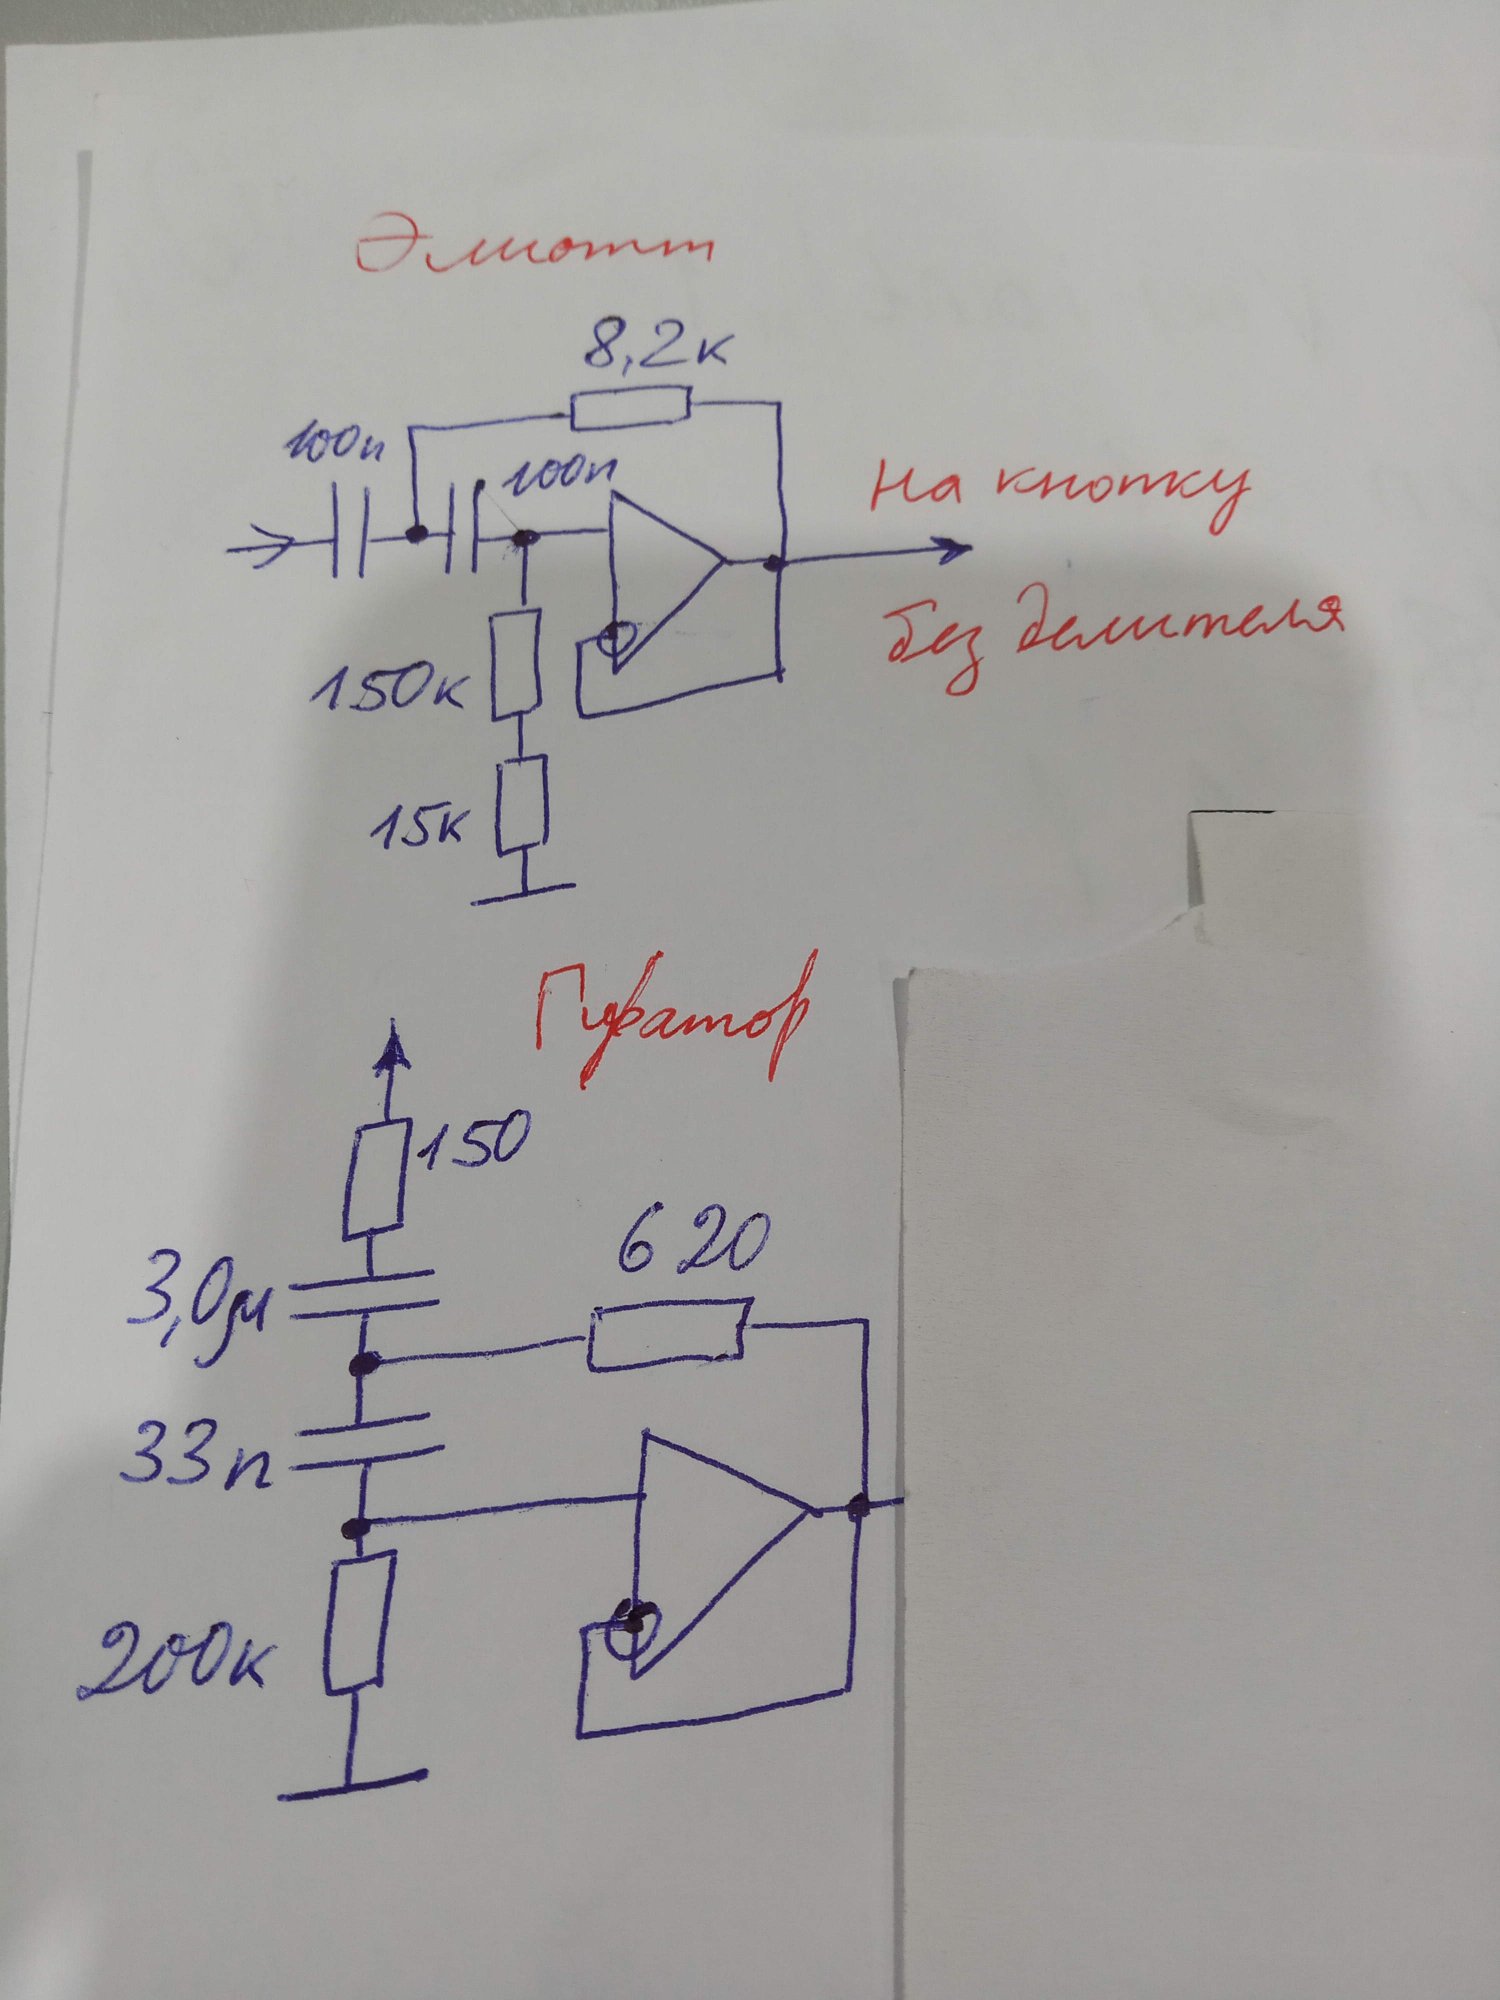 Элиотт
8,2к
100n
100n
На кнопку
без делителя
150к
15к
Гиратор
150
620
3,0м
33n
200к